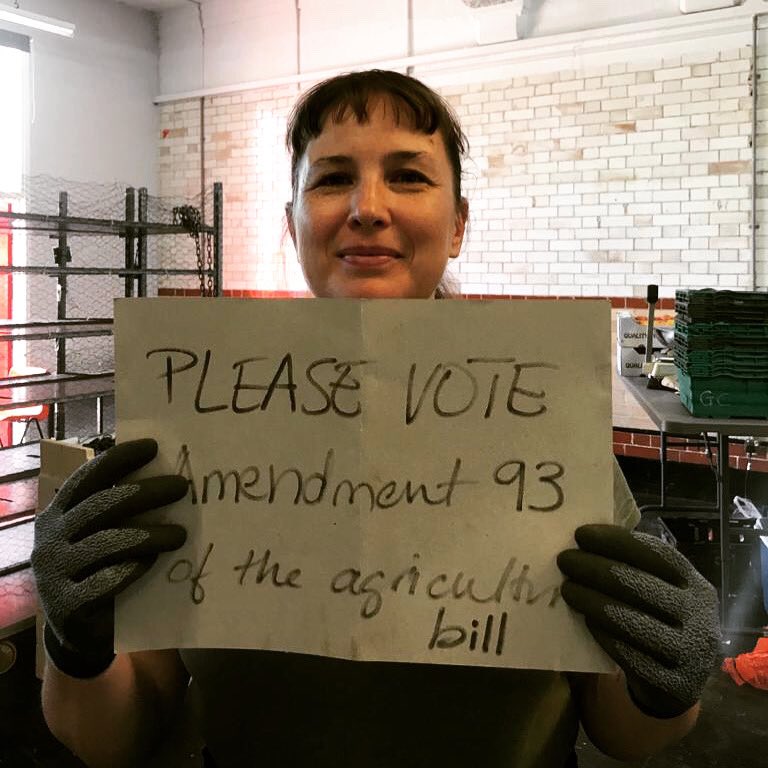 PLEASE VOTE
Amendment 93
of the agricultur
bill
QUALITY
QUALI
GC